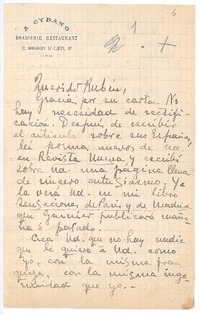 6
A CYRANO
BRASSERIE RESTAURANT
1
+
Querido Rubén,
Gracias por su carta. No
hay necesidad de rectifi-
cación. Después de escribir
el artículo sobre su España,
leí poemas nuevos de Ud.
en Revista Nueva y escribí
sobre Ud. una página llena
de sincero entusiasmo. Ya
la verá Ud. en mi libro
Sensaciones de París y de Madrid
que Garnier publicará maña-
na ó pasado.
Crea Ud. que no hay nadie
que le quiera á Ud. como
yo, con la misma fran-
queza, con la misma inge-
nuidad que yo. —